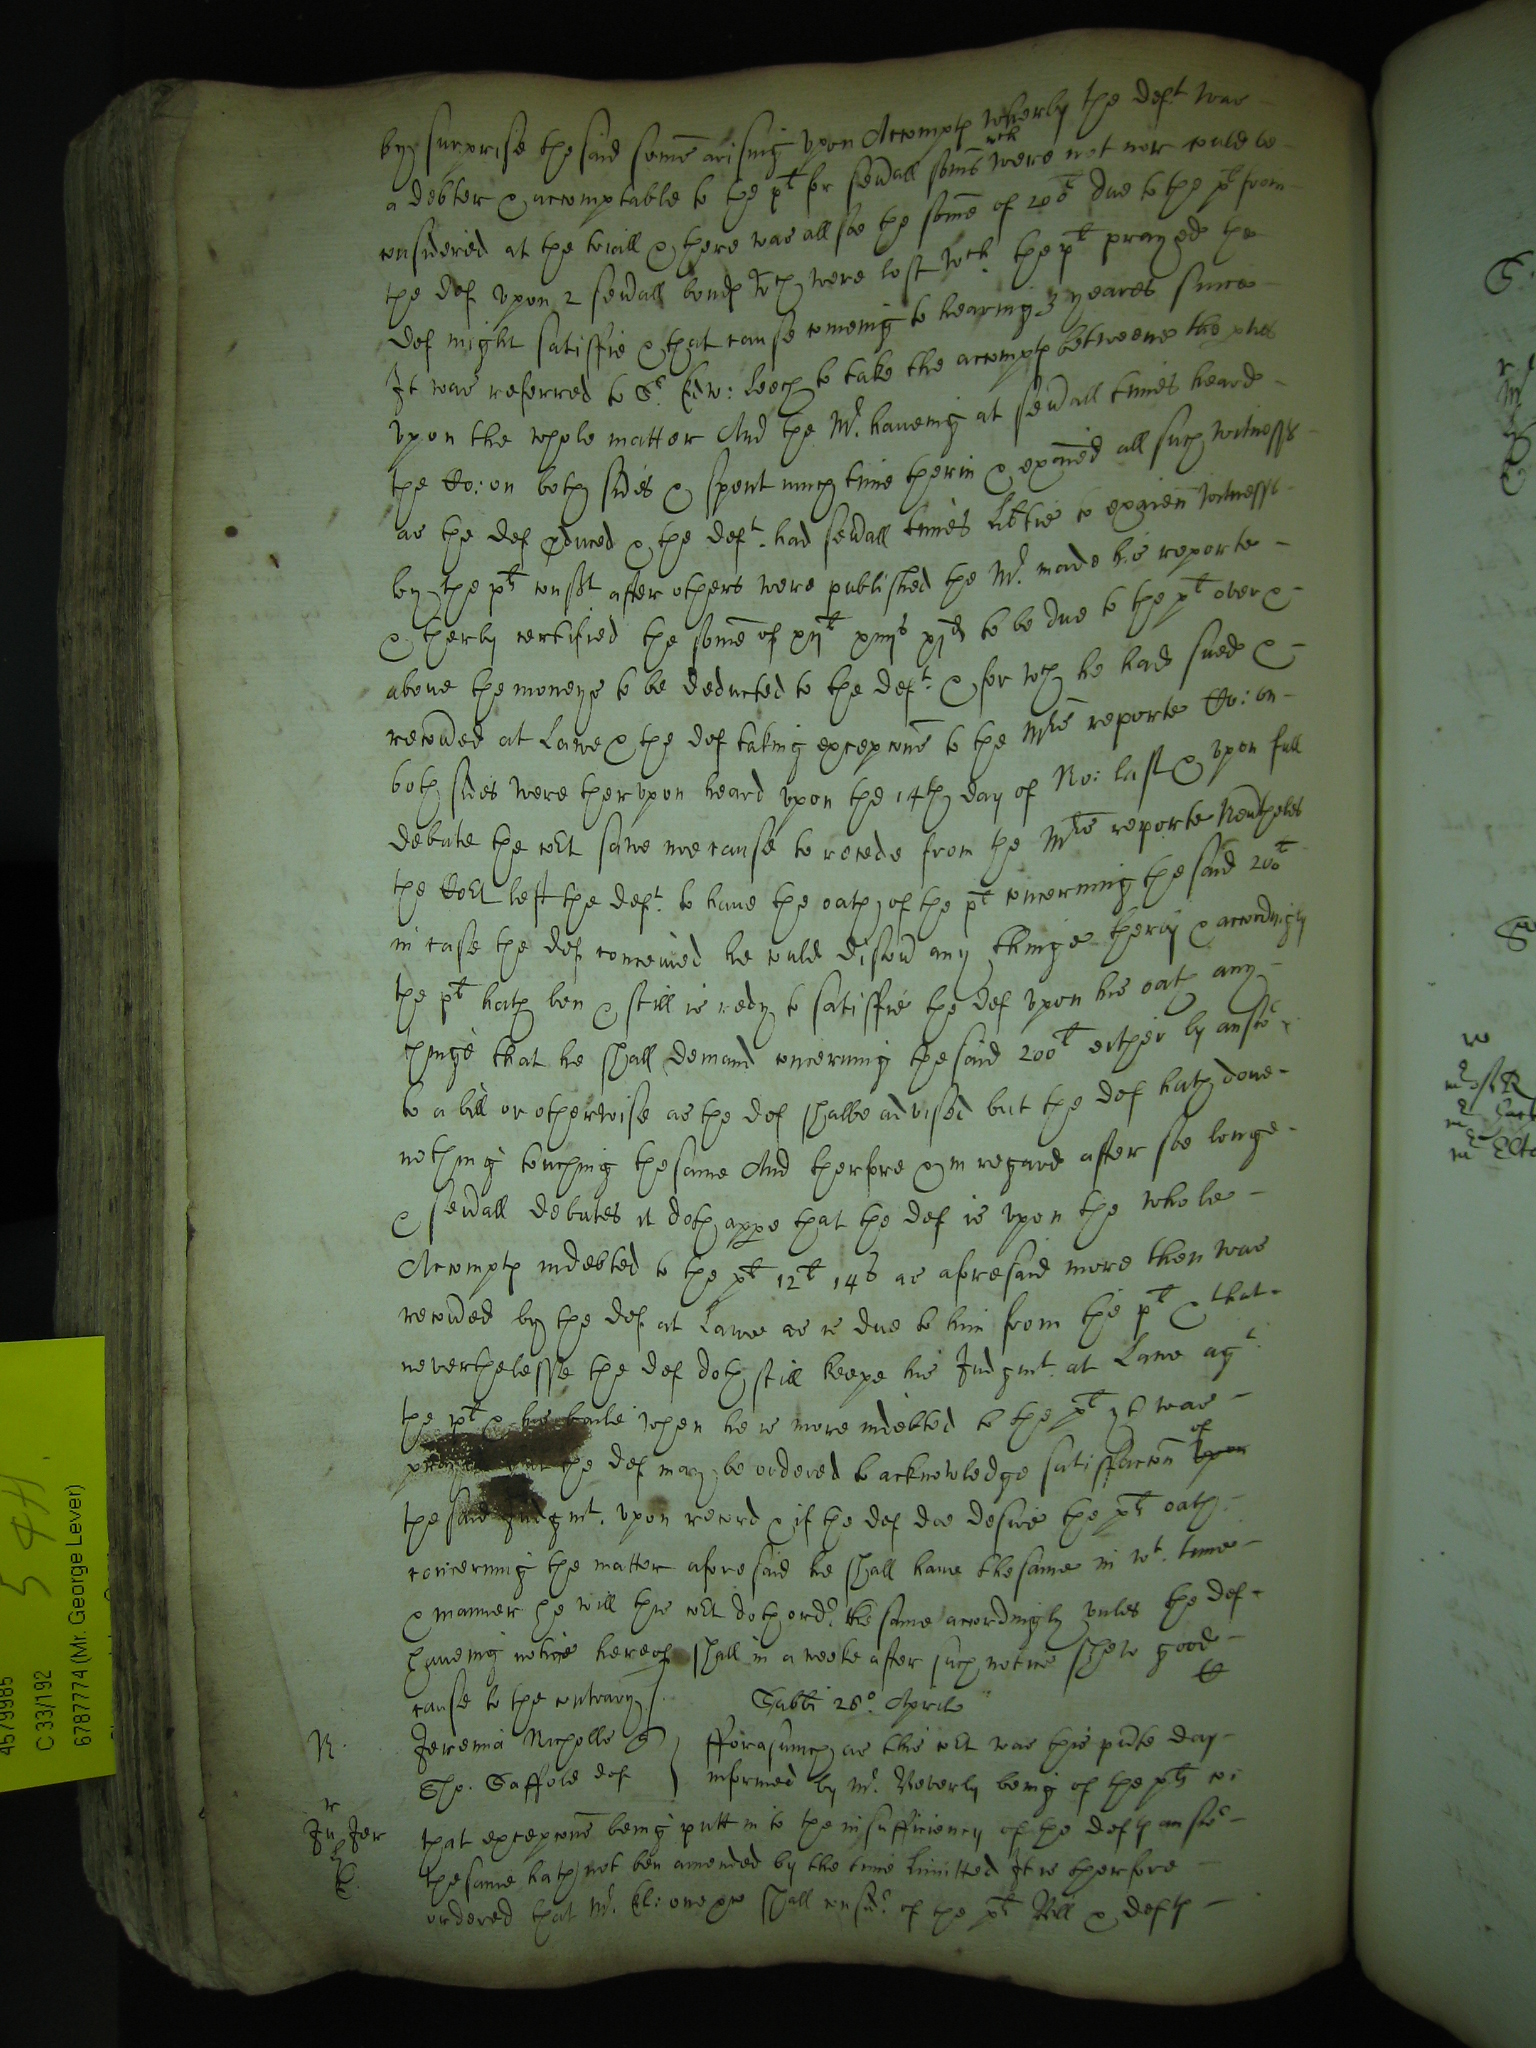 by surprise the said some arising upon Accompt wherby the deft was
a debter & accomptable to the plt for sevall somes wch were not nor could be
considered at the triall & there was allsoe the some of 200l due to the plt from
the def upon 2 sevall bonds wch were lost wch the plt prayed the
def might satisfie & that cause comeing to hearing 3 yeares since
It was referred to Sr Edw: Leech to take the accompt betweene the pties
upon the whole matter And the Mr haueing at sevall times heard
the Co: on both sides & spent much time therin & exaied all such witnesses
as the def pduced & the deft had sevall times libtie to exaien witnesses
by the plts consent after others were published the Mr made his reporte
& therby certified the some of xijl xiiijs xjd to be due to the plt over &
aboue the moneys to be deducted to the deft & for wch he had sued &
recovred at Lawe & the def taking excepcons to the Mrs reporte Co: on
both sides were therupon heard upon the 14th day of No: last & upon full
debate the cort sawe noe cause to recede from the Mrs reporte Nevrtheles
the Cort left the deft to haue the oath of the plt concerning the said 200l
in case the def conceived he could discovr any thinge therby & accordingly
the plt hath ben & still is redy to satisfie the def upon his oath any
thinge that he shall demand concerning the said 200l either by answr
to a bill or otherwise as the def shalbe advised but the def hath done
nothing touching the same And therfore & in regard after soe longe
& sevall debates it doth appe that the def is upon the whole
Accompt indebted to the plt 12l 14s as aforesaid more then was
recovred by the def at Lawe as is due to him from the plt & that
neverthelesse the def doth still keepe his Judgmt at Lawe agt
the plt & his baile when he is more indebted to the plt It was
prayed that the def may be ordered to acknowledge satisfaccon upon of
the said Judgmt upon record & if the def doe desire the plts oath
concerning the matter aforesaid he shall haue the same in wt time
& manner he will this cort doth ordr the same accordingly unles the def
haueing notice hereof shall in a weeke after such notice shew good
cause to the contrary
Sabbti 26o Aprilis
R
Jeremia Nicholls plt
Tho. Saffold def
fforasmuch as this cort was this psnte day
informed by Mr Beverly being of the plts co:
that excepcons being putt in to the insufficiency of the defts answr
the same hath not ben amended by the time limitted It is therfore
ordered that Mr shall considr of the plts Bill & defts
4579985
C 33/192
6787774 (Mr. George Lever)